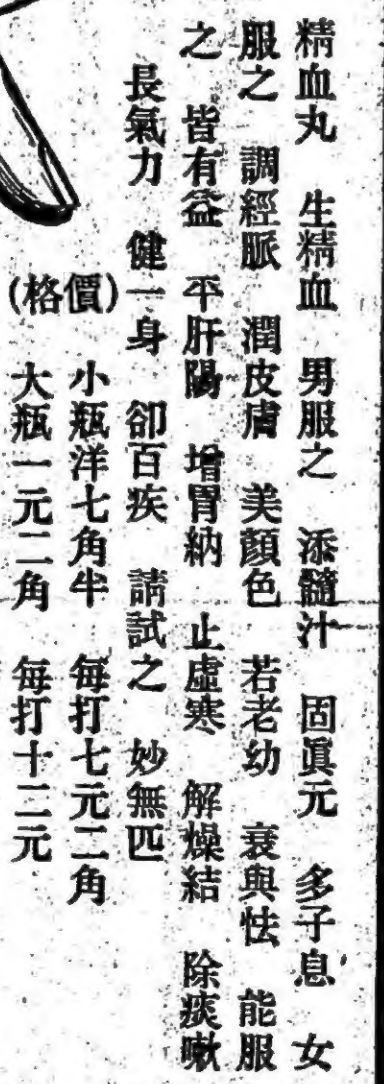 精血丸　生精血　男服之　添髓汁　固眞元　多子息　女
服之　調經脈　潤皮膚　美顏色　若老幼　衰與怯　能服
之　皆有益　平肝陽　增胃納　止虛寒　解燥結　除痰嗽
長氣力　健一身　卻百疾　請試之　妙無匹
(格價)
小瓶洋七角半　每打七元二角
大瓶一元二角　每打十二元